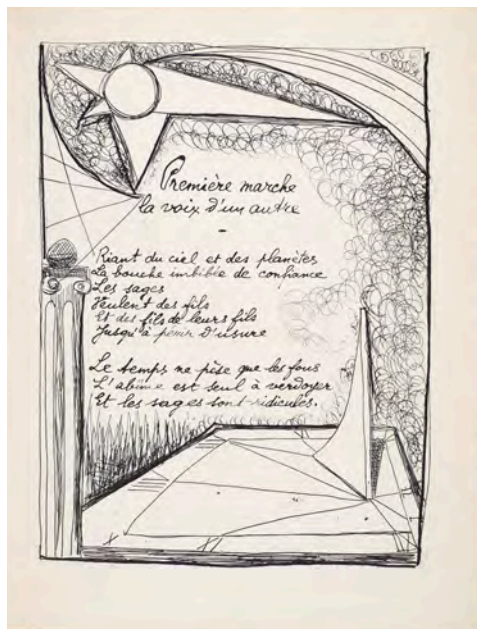 Première marche
la voix d'un autre
-
Riant du ciel et des planètes
La bouche imbibée de confiance
Les sages
Veulent des fils
Et des fils de leurs fils
Jusqu'à périr d'usure

Le temps ne pèse que les fous
L'abîme est seul à verdoyer
Et les sages sont ridicules.